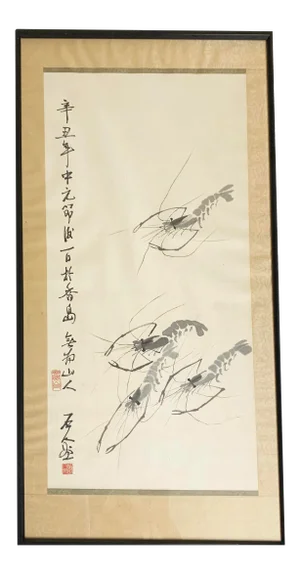 辛丑年中元節後一日於香島無為山人
石人墅